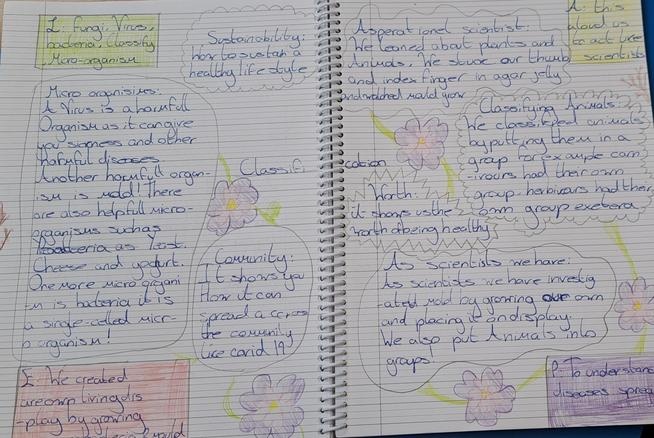 L: Fungi, Virus,
bacteria, Classify
Micro-organism
Sustainability:
how to sustain a
healthy life style
Micro organisims:
A Virus is a harmfull
Organism as it can give
you sickness and other
harmful diseases
Another harmfull organ-
ism is mold! There
are also helpfull micro-
organisms suchas
bacteria as Yeast.
Cheese and yogurt.
One More Micro organi
-sm is bacteria it is
a single-celled micr-
o organism!
Classifi
Comunity:
It shows you
How it can
spread a cross
the comunity
like covid 19
E: We created
are own living dis
-play by growing
Asperational scientist:
We learned about plants and
Animals. We stuck our thumb
and index finger in agar jelly
and watched mould grow
A: this
alowd us
to act like
scientists
cation
Classifying Animals:
We classified animals
by putting them in a
group for example carn
-ivours had ther own
group. herbivours had ther
own group exetera
Worth:
it shows us the
worth of being healthy
As Scientists we have:
As scientists we have investig
-ated mold by growing our own
and placing it on display.
We also put Animals into
groups!
P: To understand
diseases spread